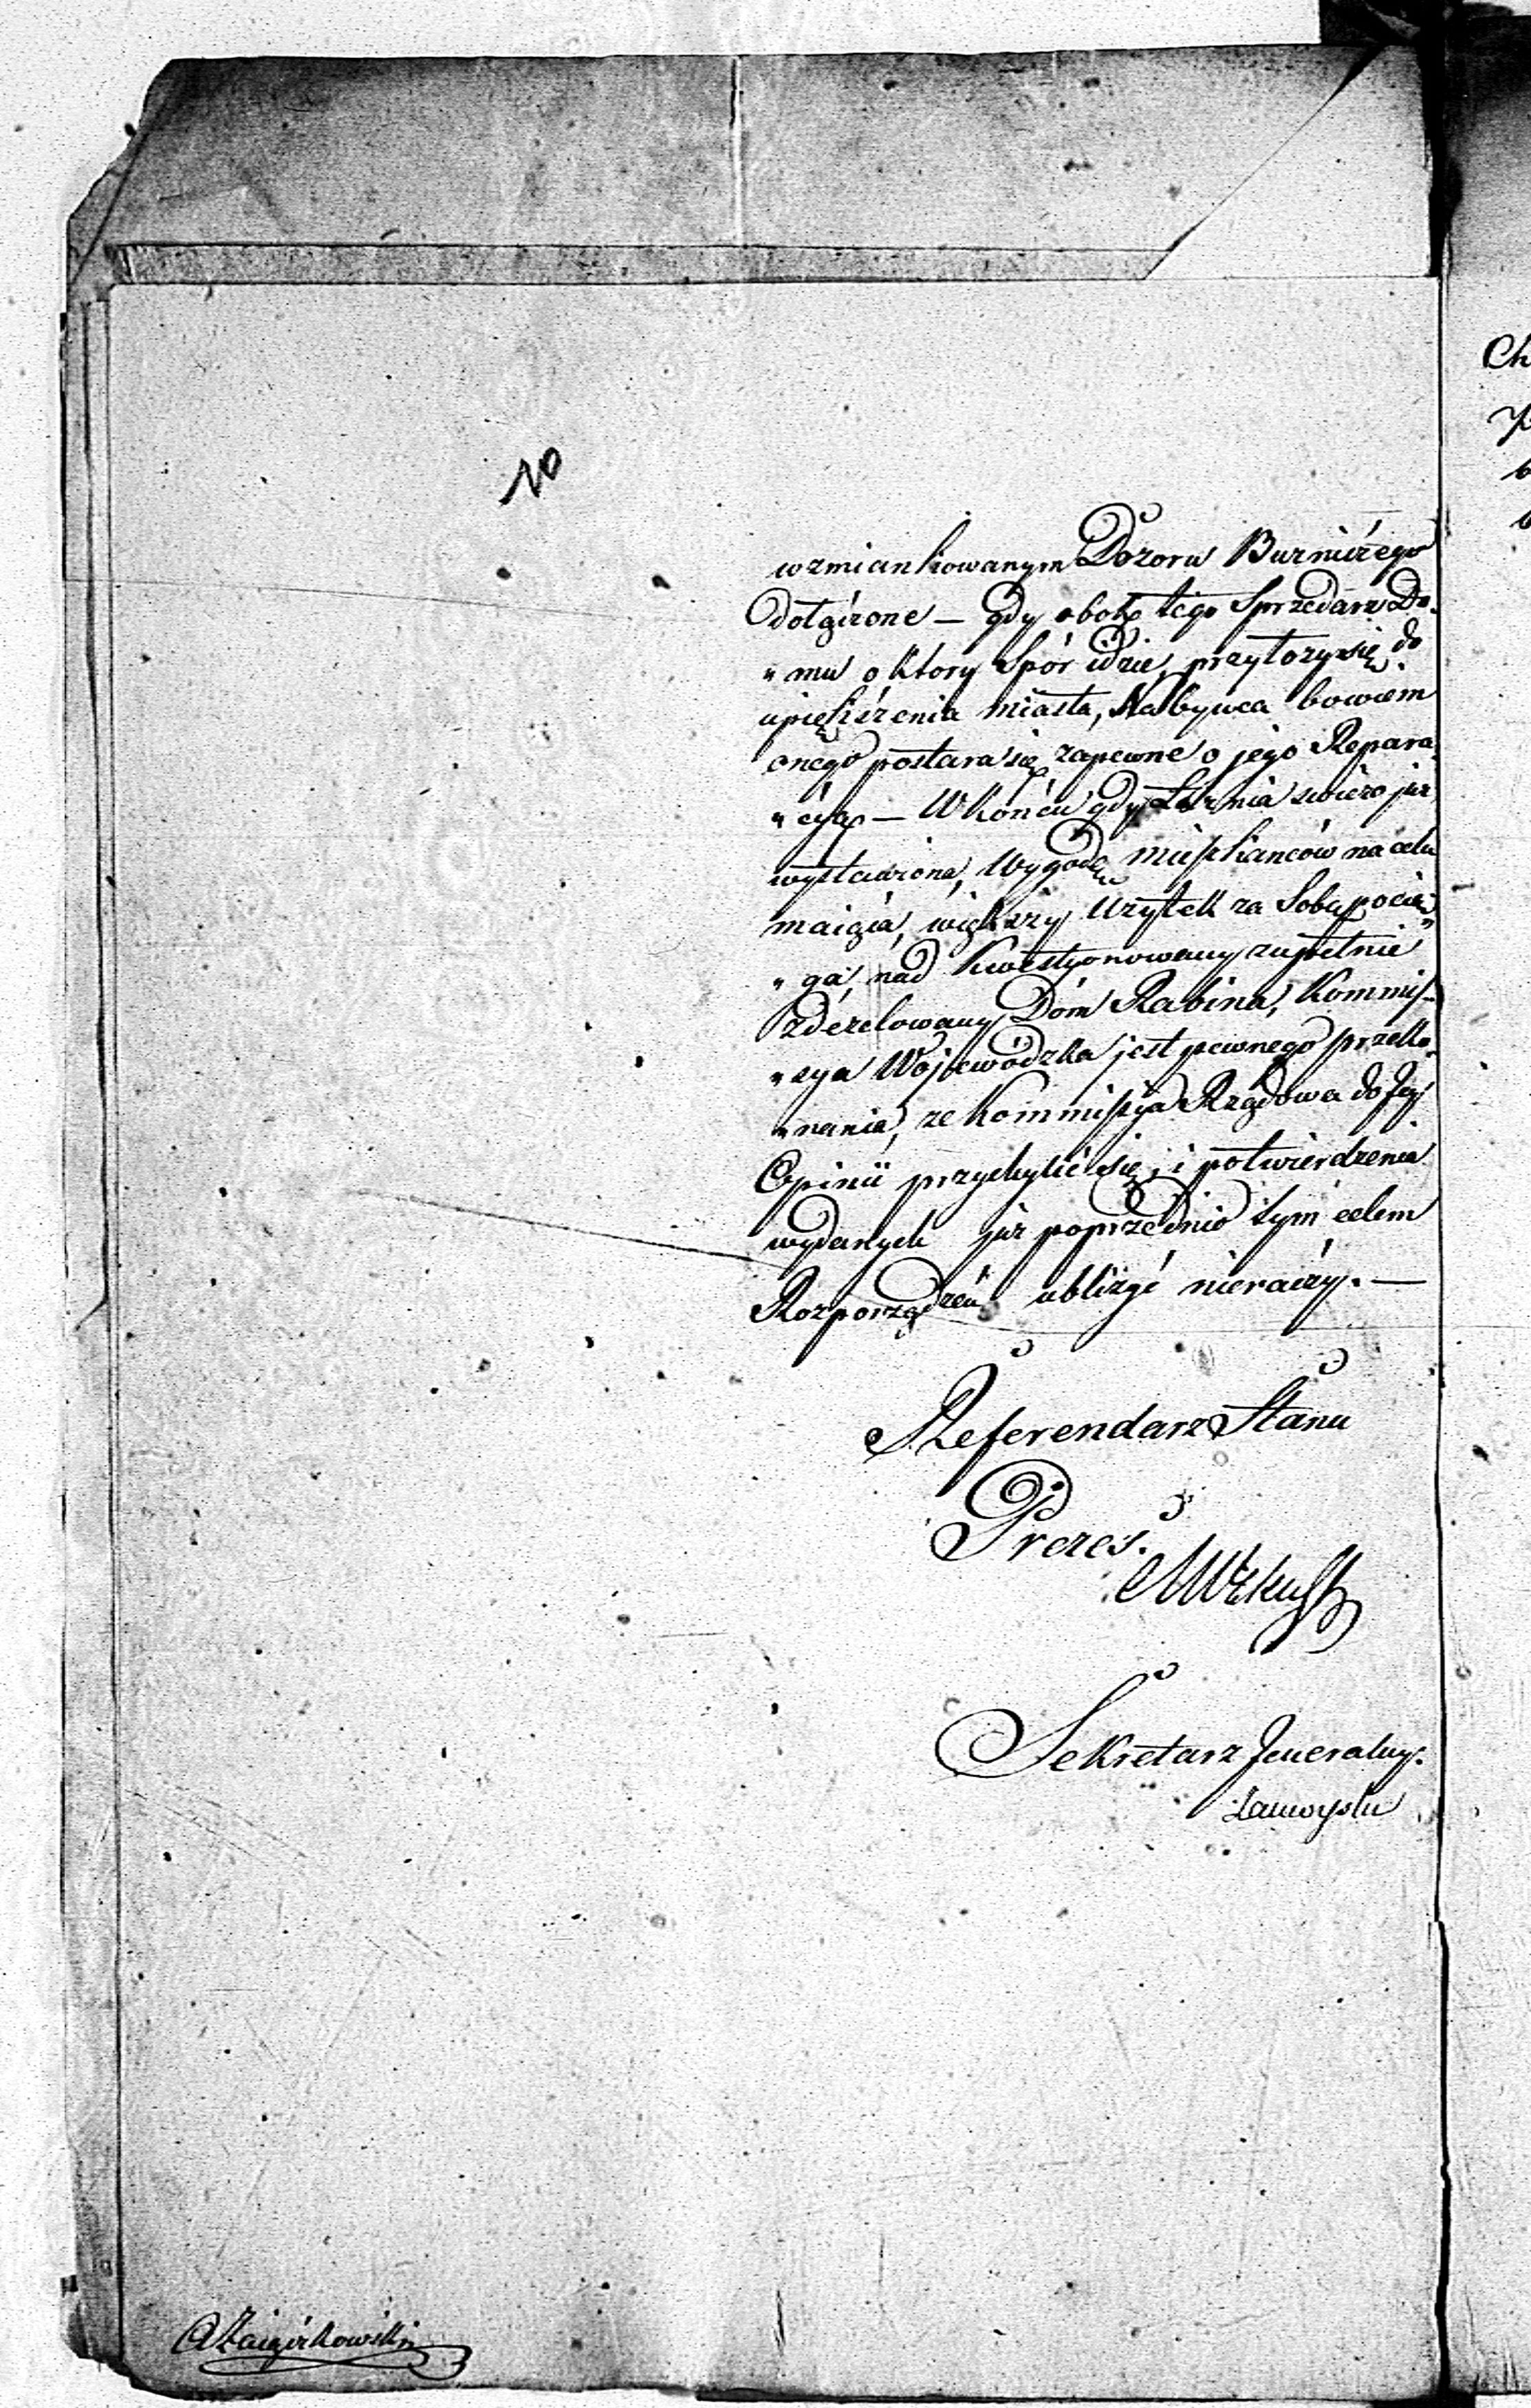 10
wzmiankowanym Dozoru Bużniczego
dołączone — gdy obok tego Sprzedarz Do„
„mu o ktory Spór idzie, przyłozy się do
upiększenia miasta, Nabywca bowiem
onego postara się zapewne o jego Repara„
„cyą — W końcu gdy Łaznia swieżo już
wystawiona, Wygodę mieszkanców na celu
maiąca, większy Uzytek za Sobą pocią„
„ga, nad Kwestyonowany zupełnie
zdezelowany Dóm Rabina, Kommis„
„sya Wojewódzka jest pewnego przeko„
„nania, ze Kommissya Rządowa do Jej
Opinii przychylić się, i potwierdzenia
wydanych już poprzednio tym celem
Rozporządzeń ubliżyć nieraczy. —
Referendarz Stanu
Prezes.
Sekretarz Jeneralny.
Zamoyski
Ch